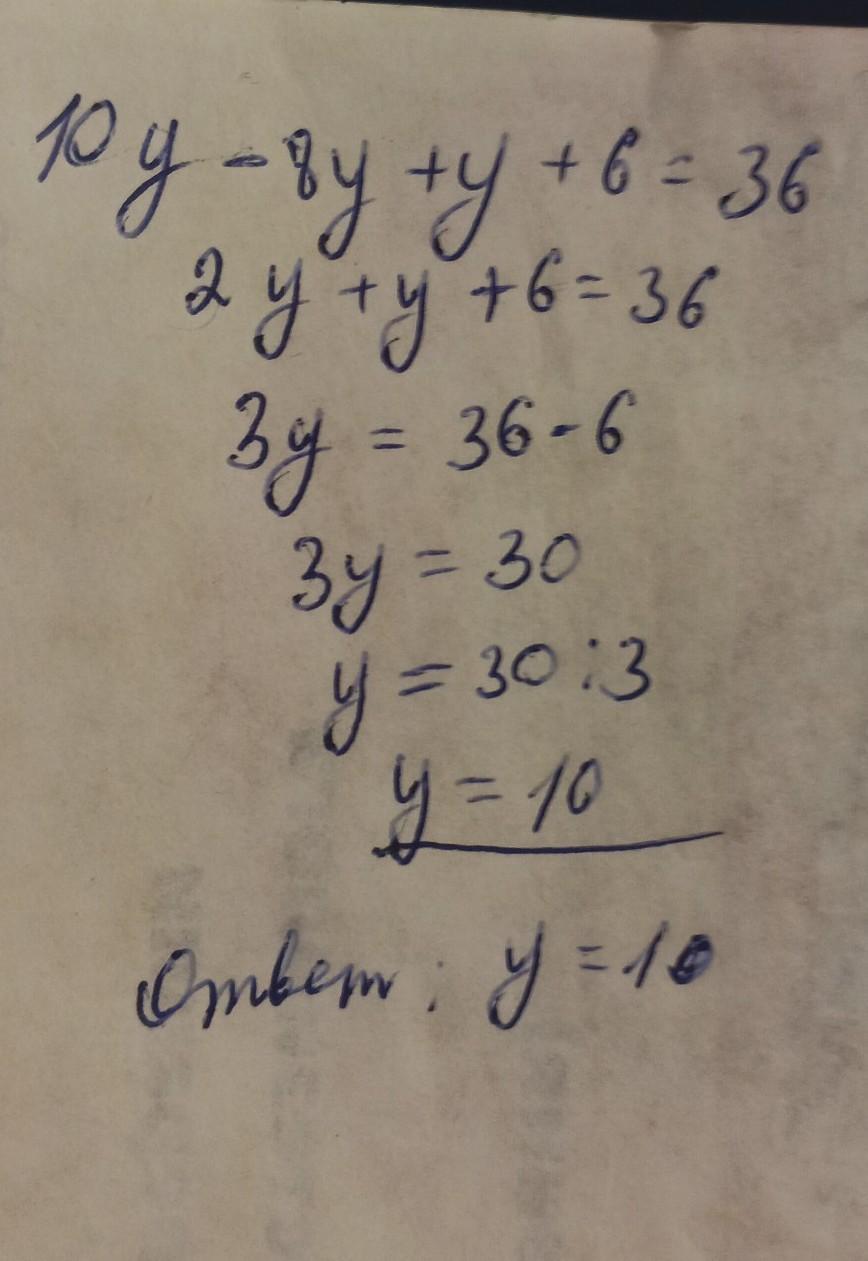 10y - 8y + y + 6 = 36
2y + y + 6 = 36
3y = 36 - 6
3y = 30
y = 30 : 3
y = 10
Ответ: y = 10